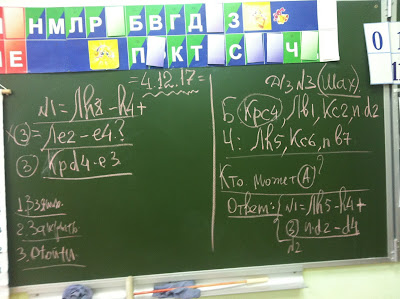 НМЛР БВГД З
Е П К Т С Ч
0
1
=4.12.17=
N1=Лh8-h4+
x③=Ле2-е4?
③ Kpd4-e3
1. Взятие.
2. Закрыть
3. Отойти.
Д/з N3 (Шах)
Б: Крс4, Лв1, Кс2, п.d2
Ч: Лh5, Кс6, п в7
Кто может А?
Ответ: N1=Лh5-h4+
② п.d2-d4
N2